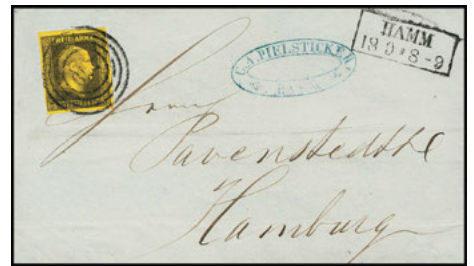 HAMM
18 9 * 8-9
C.A. PIELSTICKER
HAMM
Herrn
Pavenstedt
Hamburg